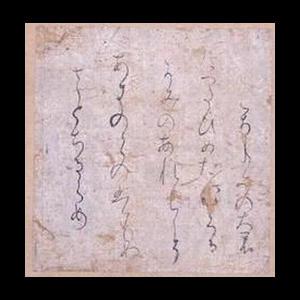 かねみの大君
たつたひめたむくる
かみのあれはこそ
あきのこのはのぬ
さとちるらめ